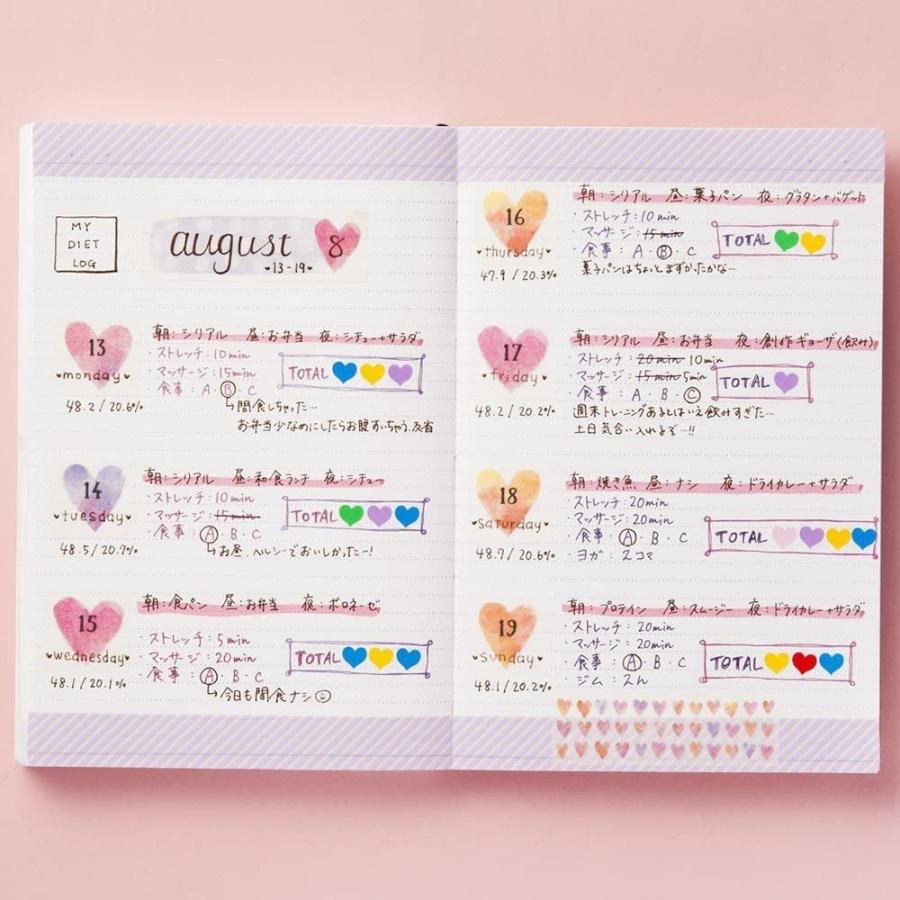 MY
DIET
LOG
august 8
♥13-19♥
13
♥monday♥
48.2 / 20.6%
朝:シリアル 昼:お弁当 夜:シチュー+サラダ
・ストレッチ:10min
・マッサージ:15min
・食事:A・B・C
TOTAL
↳間食しちゃった…
お弁当少なめにしたらお腹すいちゃう、反省
14
♥tuesday♥
48.5 / 20.7%
朝:シリアル 昼:和食ランチ 夜:シチュー
・ストレッチ:10min
・マッサージ:15min
・食事:A・B・C
TOTAL
↳お昼、ヘルシーでおいしかったー!
15
♥wednesday♥
48.1 / 20.1%
朝:食パン 昼:お弁当 夜:ボロネーゼ
・ストレッチ:5min
・マッサージ:20min
・食事:A・B・C
TOTAL
↳今日も間食ナシ☺
16
♥thursday♥
47.9 / 20.3%
朝:シリアル 昼:菓子パン 夜:グラタン+バゲット
・ストレッチ:10min
・マッサージ:15min
・食事:A・B・C
TOTAL
菓子パンはちょっとまずかったかな…
17
♥friday♥
48.2 / 20.2%
朝:シリアル 昼:お弁当 夜:創作ギョーザ(飲み)
・ストレッチ:20min 10min
・マッサージ:15min 5min
・食事:A・B・C
TOTAL
週末トレーニングあるとはいえ飲みすぎた…
土日気合い入れるぞ…!!
18
♥saturday♥
48.7 / 20.6%
朝:焼き魚 昼:ナシ 夜:ドライカレー+サラダ
・ストレッチ:20min
・マッサージ:20min
・食事:A・B・C
・ヨガ:2コマ
TOTAL
19
♥sunday♥
48.1 / 20.2%
朝:プロテイン 昼:スムージー 夜:ドライカレー+サラダ
・ストレッチ:20min
・マッサージ:20min
・食事:A・B・C
・ジム:
TOTAL